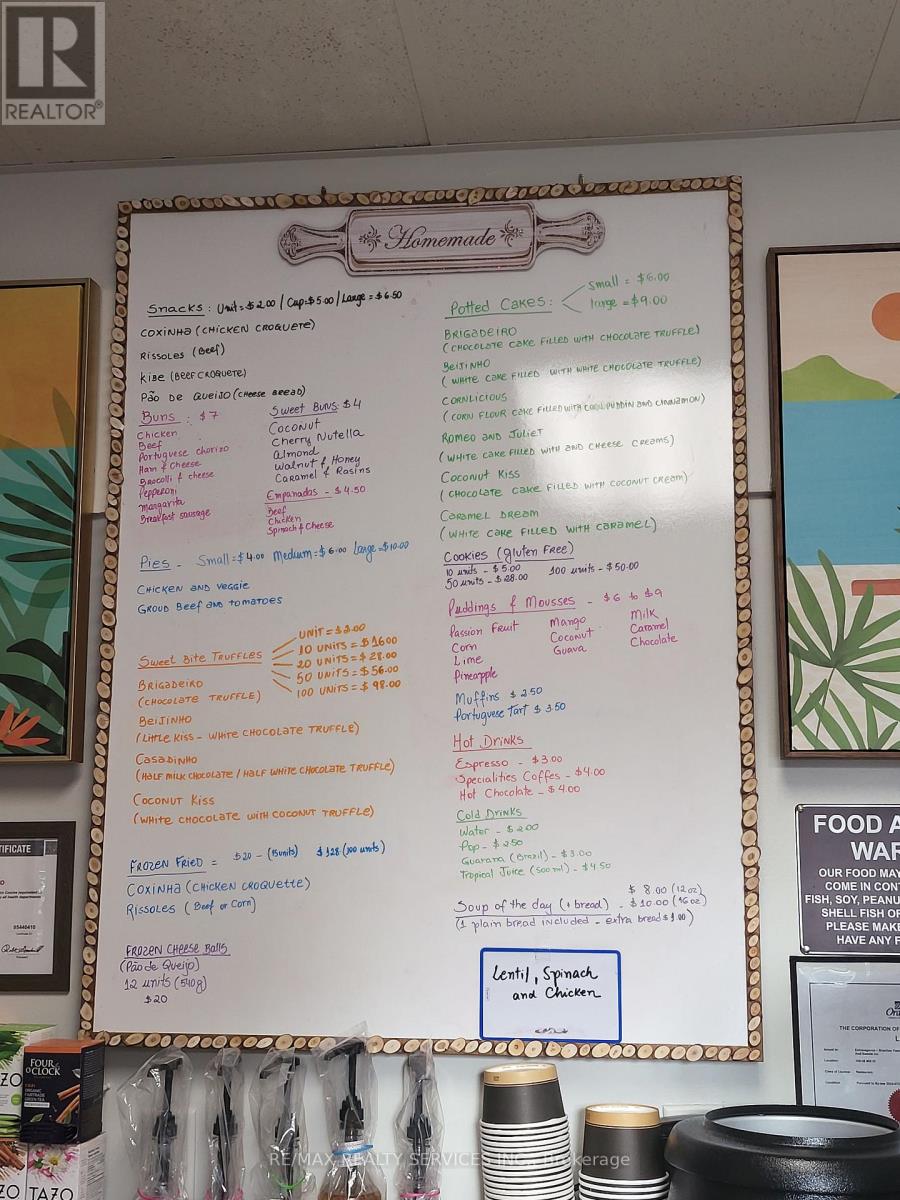 R
REALTOR®
Homemade
Snacks: Unit=$2.00 / Cup=$5.00 / Large=$6.50
COXINHA (CHICKEN CROQUETE)
RISSOLES (Beef)
KIBE (BEEF CROQUETE)
PÃO DE QUEIJO (CHEESE BREAD)
Buns: $7
Chicken
Beef
Portuguese chorizo
Ham & Cheese
Brocolli & cheese
Pepperoni
Margarita
Breakfast sausage
Sweet Buns: $4
Coconut
Cherry Nutella
almond
Walnut & Honey
Caramel & Rasins
Empanadas - $4.50
Beef
Chicken
Spinach & Cheese
Pies - Small=$4.00 Medium=$6.00 Large=$10.00
CHICKEN AND VEGGIE
GROUD BEEF AND TOMATOES
SWEET BITE TRUFFLES
UNIT=$2.00
10 UNITS=$16.00
20 UNITS=$28.00
50 UNITS=$56.00
100 UNITS=$98.00
BRIGADEIRO
(CHOCOLATE TRUFFLE)
BEIJINHO
(LITTLE KISS - WHITE CHOCOLATE TRUFFLE)
CASADINHO
(HALF MILK CHOCOLATE / HALF WHITE CHOCOLATE TRUFFLE)
COCONUT KISS
(WHITE CHOCOLATE WITH COCONUT TRUFFLE)
FROZEN FRIED = $20 - (15units) $128 (100 units)
COXINHA (CHICKEN CROQUETTE)
RISSOLES (Beef or Corn)
FROZEN CHEESE BALLS
(Pão de Queijo)
12 units (540g)
$20
POTTED CAKES:
small = $6.00
large = $9.00
BRIGADEIRO
(CHOCOLATE CAKE FILLED WITH CHOCOLATE TRUFFLE)
BEIJINHO
(WHITE CAKE FILLED WITH WHITE CHOCOLATE TRUFFLE)
CORNLICIOUS
(CORN FLOUR CAKE FILLED WITH CORN PUDDIN AND CINNAMON)
ROMEO AND JULIET
(WHITE CAKE FILLED WITH AND CHEESE CREAMS)
COCONUT KISS
(CHOCOLATE CAKE FILLED WITH COCONUT CREAM)
CARAMEL DREAM
(WHITE CAKE FILLED WITH CARAMEL)
COOKIES (gluten FREE)
10 units - $5.00 100 units - $50.00
50 units - $28.00
Puddings & Mousses - $6 to $9
Passion Fruit
Corn
Lime
Pineapple
Mango
Coconut
Guava
Milk
Caramel
Chocolate
Muffins $2.50
Portuguese Tart $3.50
Hot Drinks
Espresso - $3.00
Specialities Coffes - $4.00
Hot Chocolate - $4.00
Cold Drinks
Water - $2.00
Pop - $2.50
Guarana (Brazil) - $3.00
Tropical Juice (500ml) - $4.50
Soup of the day (+ bread) - $8.00 (12oz)
$10.00 (16oz)
(1 plain bread included - extra bread $1.00)
Lentil, Spinach
and Chicken
FOOD A
WAR
OUR FOOD MAY
COME IN CONT
FISH, SOY, PEANU
SHELL FISH OR
PLEASE MAKE
HAVE ANY F
THE CORPORATION OF
TIFICATE
FOUR
O'CLOCK
ZO
TAZO
RE/MAX REALTY SERVICES INC., Brokerage